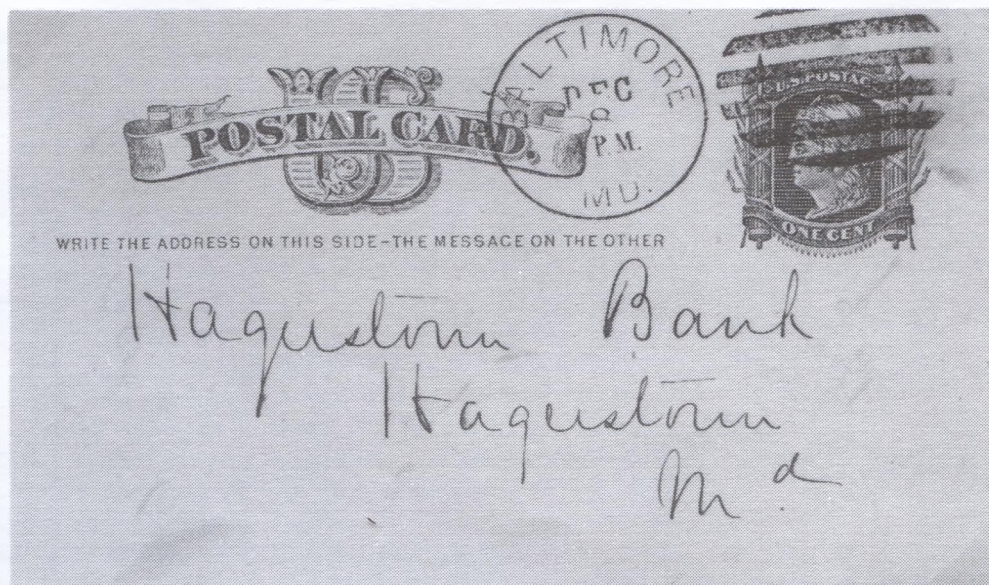 US
POSTAL CARD.
BALTIMORE
DEC
9
P.M.
MD.
U.S. POSTAGE
ONE CENT
WRITE THE ADDRESS ON THIS SIDE-THE MESSAGE ON THE OTHER
Hagerstown Bank
Hagerstown
Md